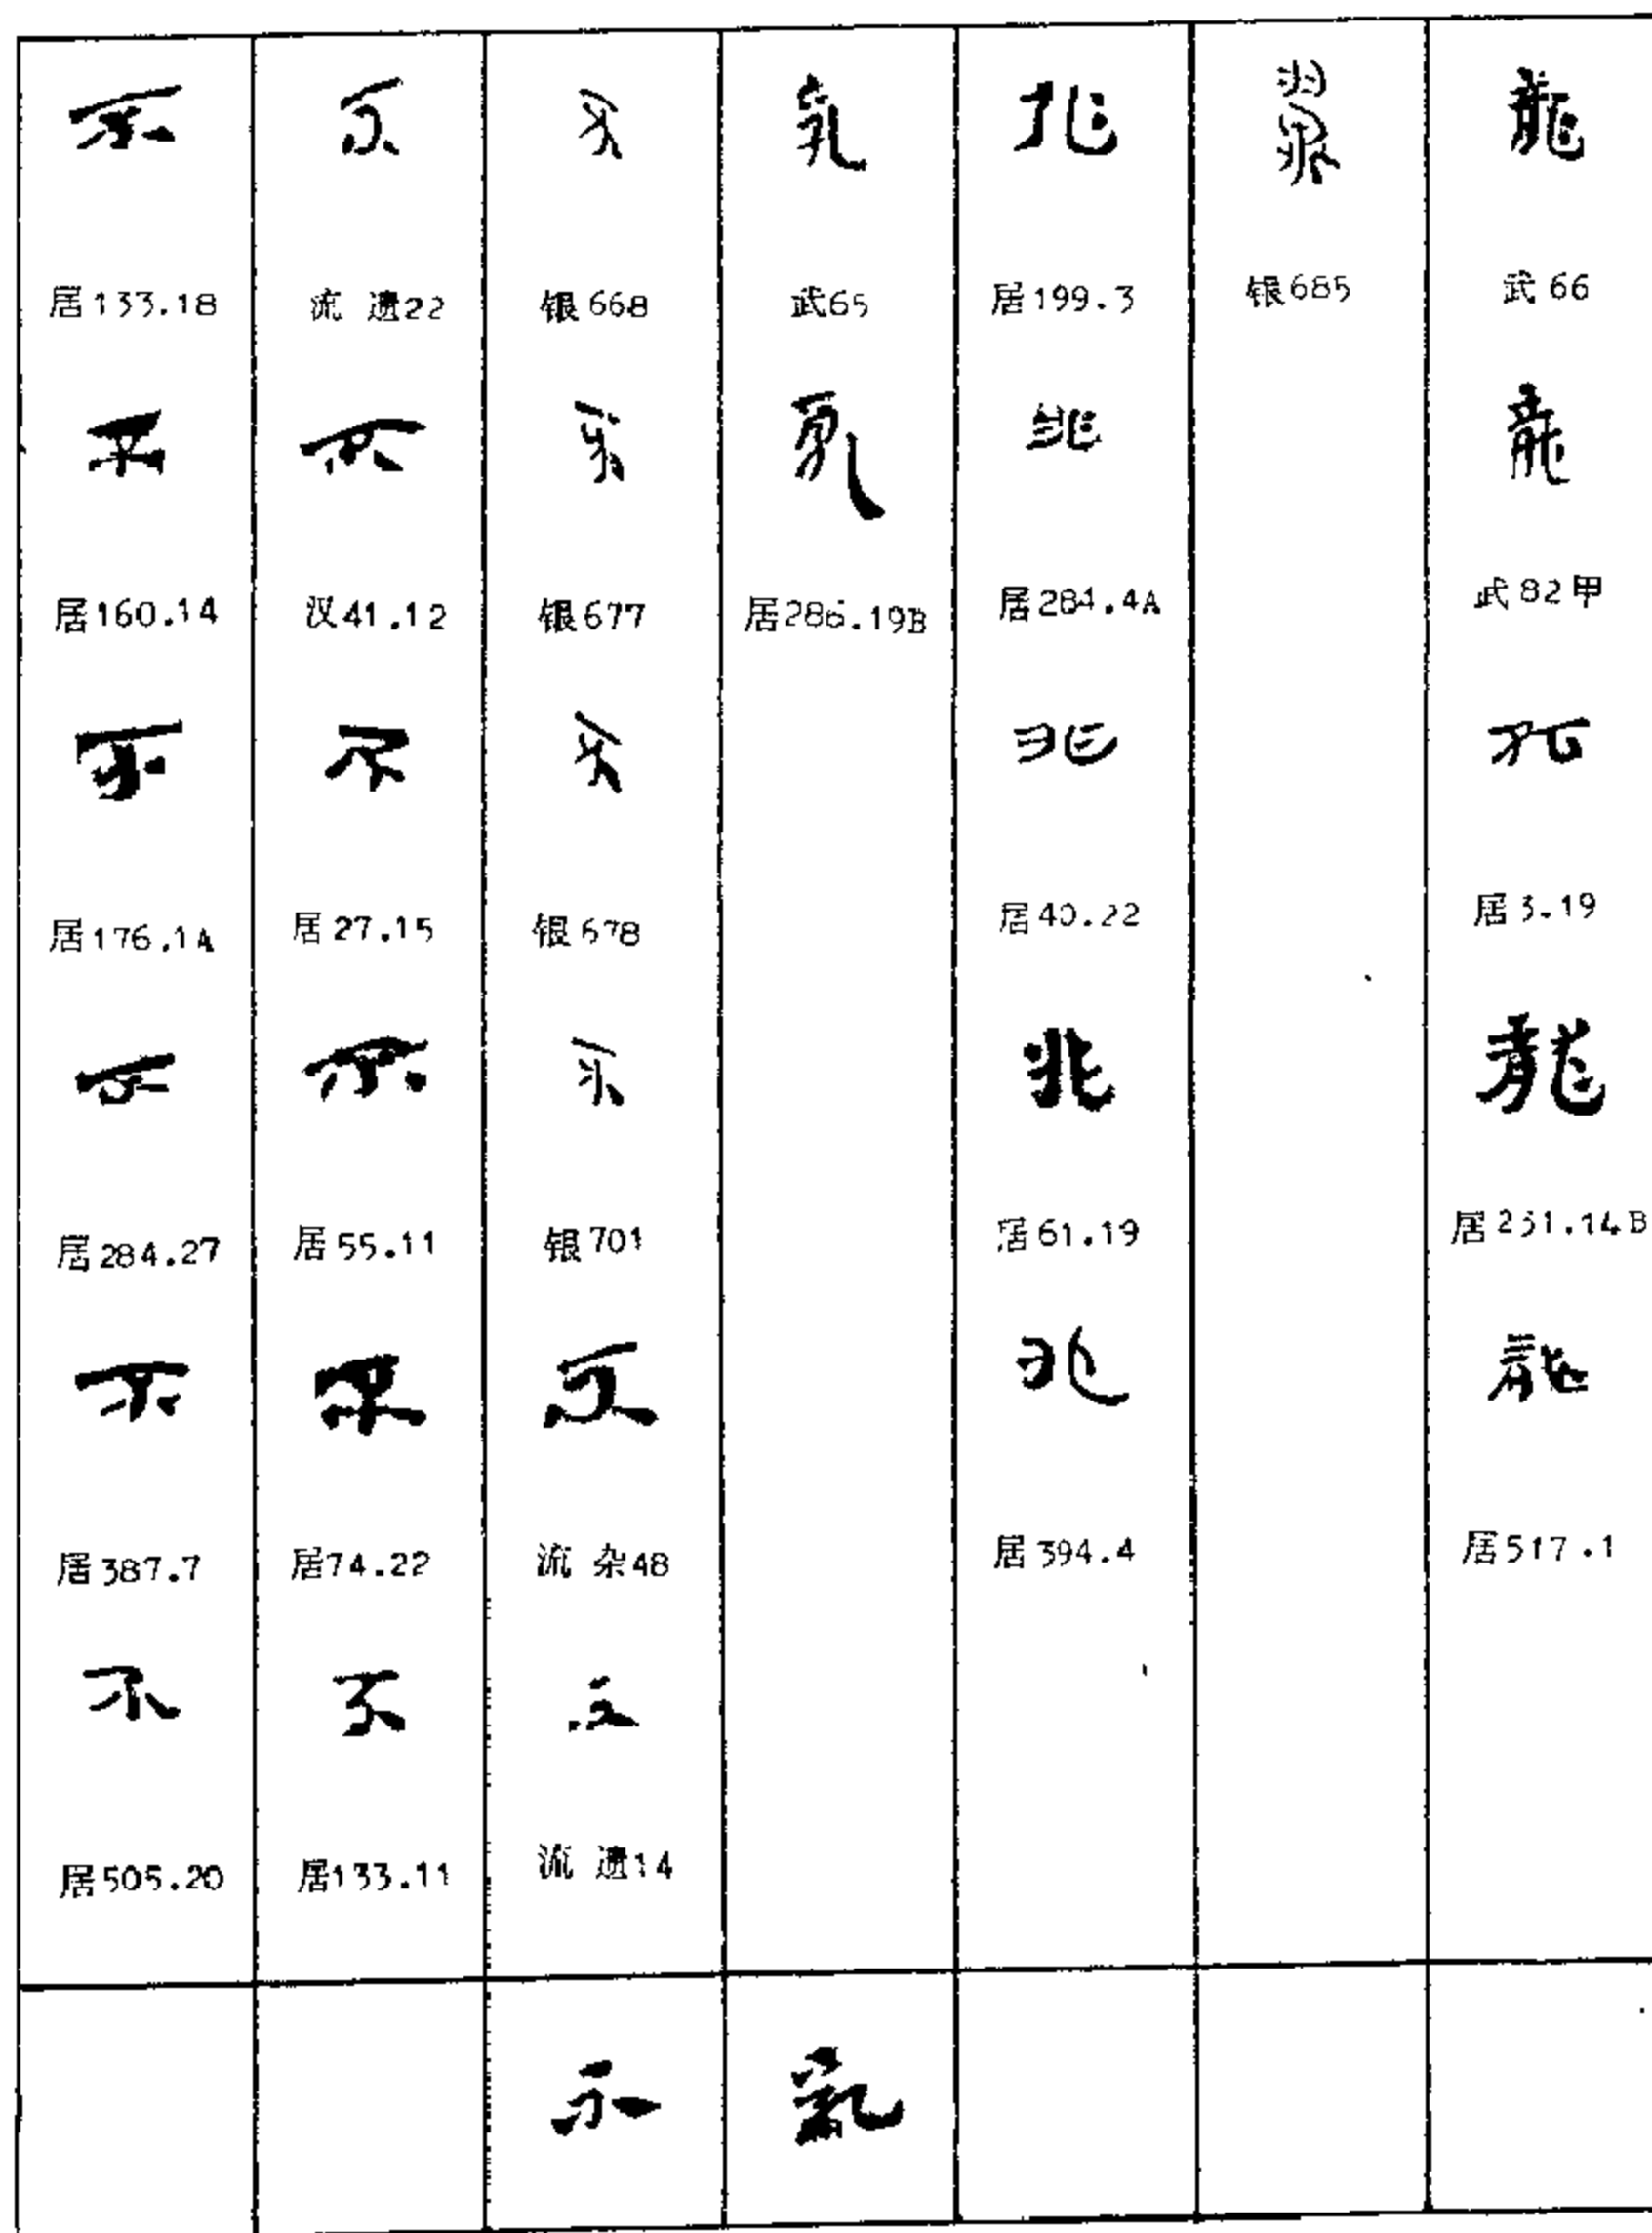 不 不 不 乳 非 龍
居133.18 流 遗22 银668 武65 居199.3 银685 武66
不 不 不 乳 非 龍
居160.14 汉41.12 银677 居286.19B 居284.4A 武82甲
不 不 不 非
居176.1A 居27.15 银678 居40.22 居3.19
不 不 不 非 龍
居284.27 居55.11 银701 居61.19 居231.14B
不 不 不 龍
居387.7 居74.22 流 杂48 居394.4 居517.1
不 不
居505.20 居133.11 流 遗14
不 乳